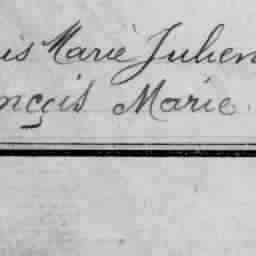 is Marie Julien
nçois Marie